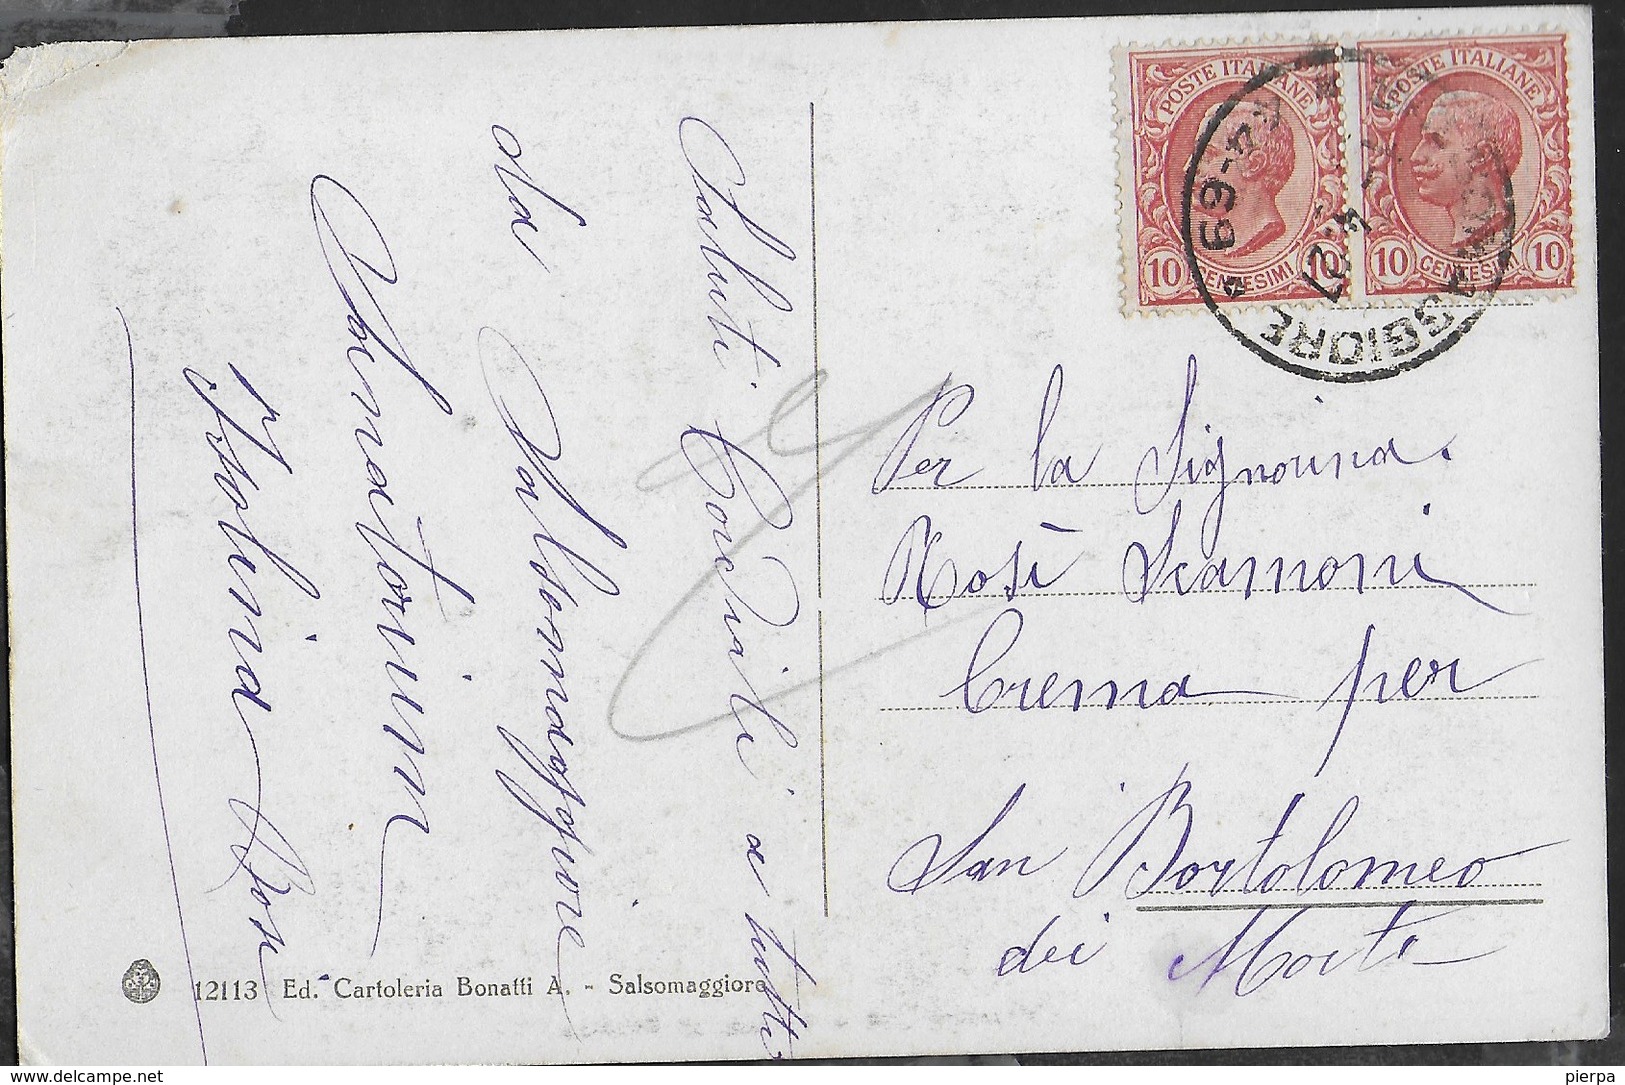 POSTE ITALIANE
10 CENTESIMI 10
POSTE ITALIANE
10 CENTESIMI 10
GGIORE
Saluti Cordiali a tutti
da Salsomaggiore
Isolina Bosi
Per la Signorina
Rosì Scamoni
Crema per
San Bortolomeo
dei Morti
12113 Ed. Cartoleria Bonatti A. - Salsomaggiore
delcampe.net
pierpa